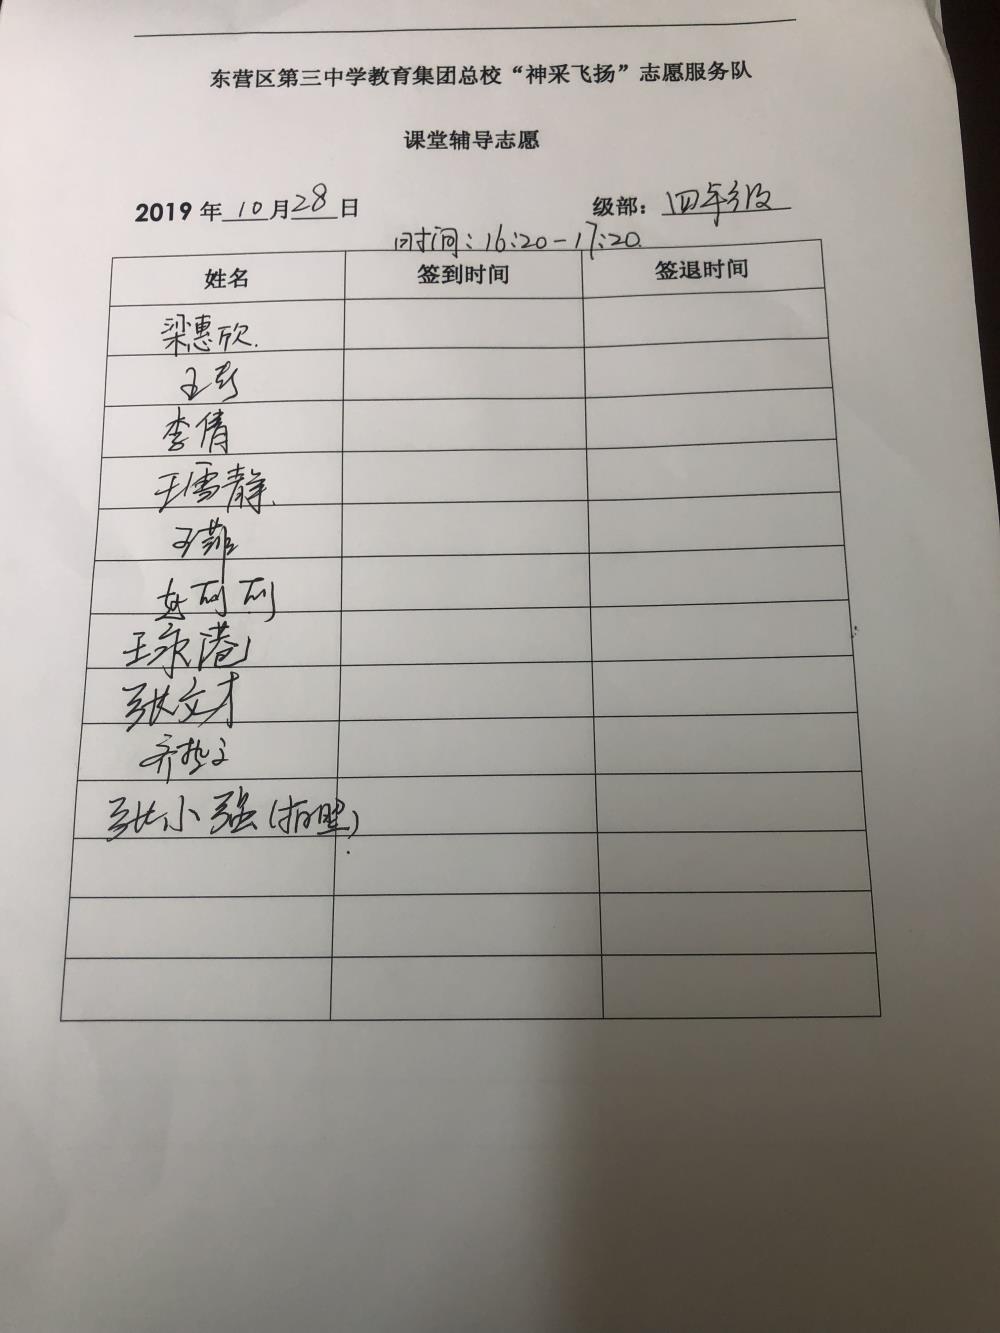 东营区第三中学教育集团总校“神采飞扬”志愿服务队
课堂辅导志愿
2019 年 10 月 28 日 级部: 四年级
时间: 16:20-17:20.
姓名 签到时间 签退时间
梁惠欣.
王彦
李倩
王雪静.
王菲
丽丽
王永港
张文才
齐
张小强(拍照)